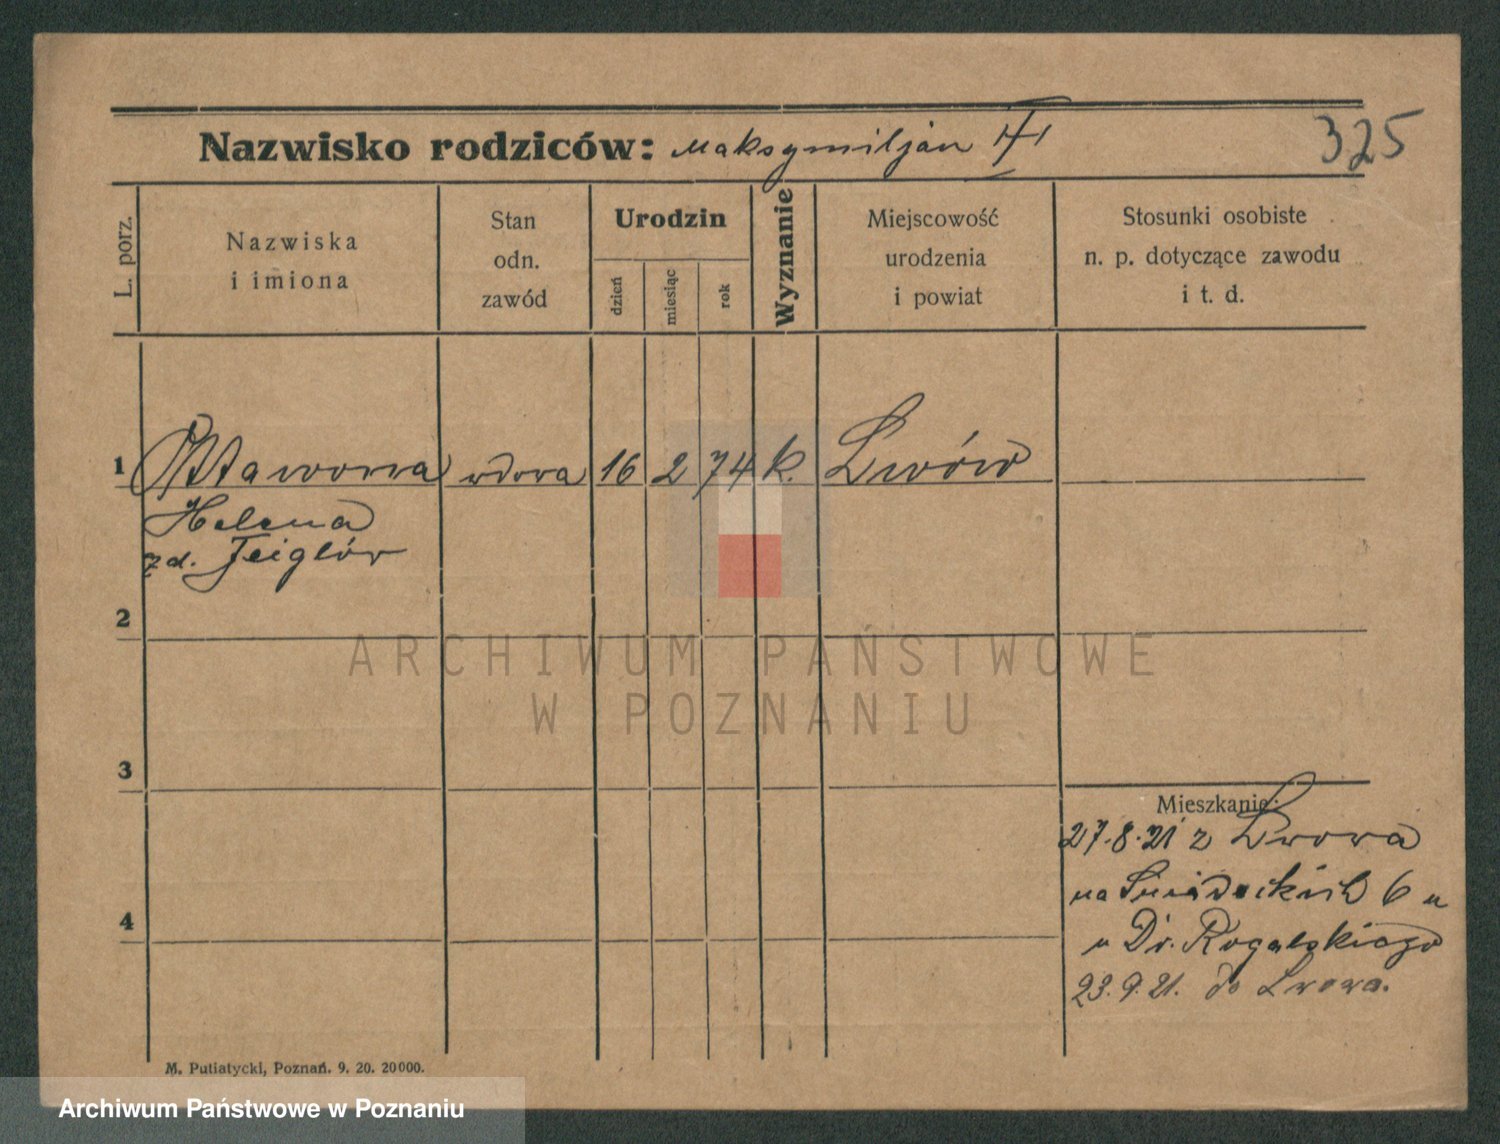 Nazwisko rodziców: Maksymiljan
325
L. porz.
Nazwiska
i imiona
Stan
odn.
zawód
Urodzin
dzień
miesiąc
rok
Wyznanie
Miejscowość
urodzenia
i powiat
Stosunki osobiste
n. p. dotyczące zawodu
i t. d.
1 wdowa 16 2 74 k. Lwów
Helena
z d. Feiglów
2
3
4
Mieszkanie:
27.8.21 z Lwowa
na Śniadeckich 6
u Dr. Rogalskiego
23.9.21. do Lwowa.
M. Putiatycki, Poznań. 9. 20. 20000.
ARCHIWUM PAŃSTWOWE
W POZNANIU
Archiwum Państwowe w Poznaniu